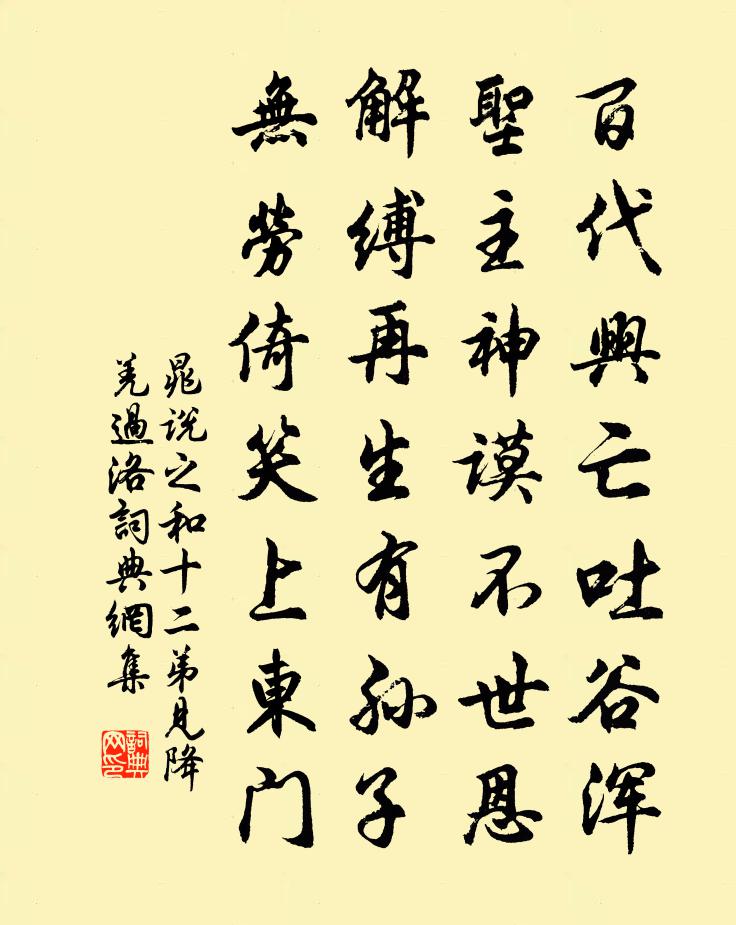 百代興亡吐谷浑
聖主神謨不世恩
解縛再生有孫子
無勞倚笑上東門
晁説之和十二弟見降
羌過洛詞典網集
詞典
网印